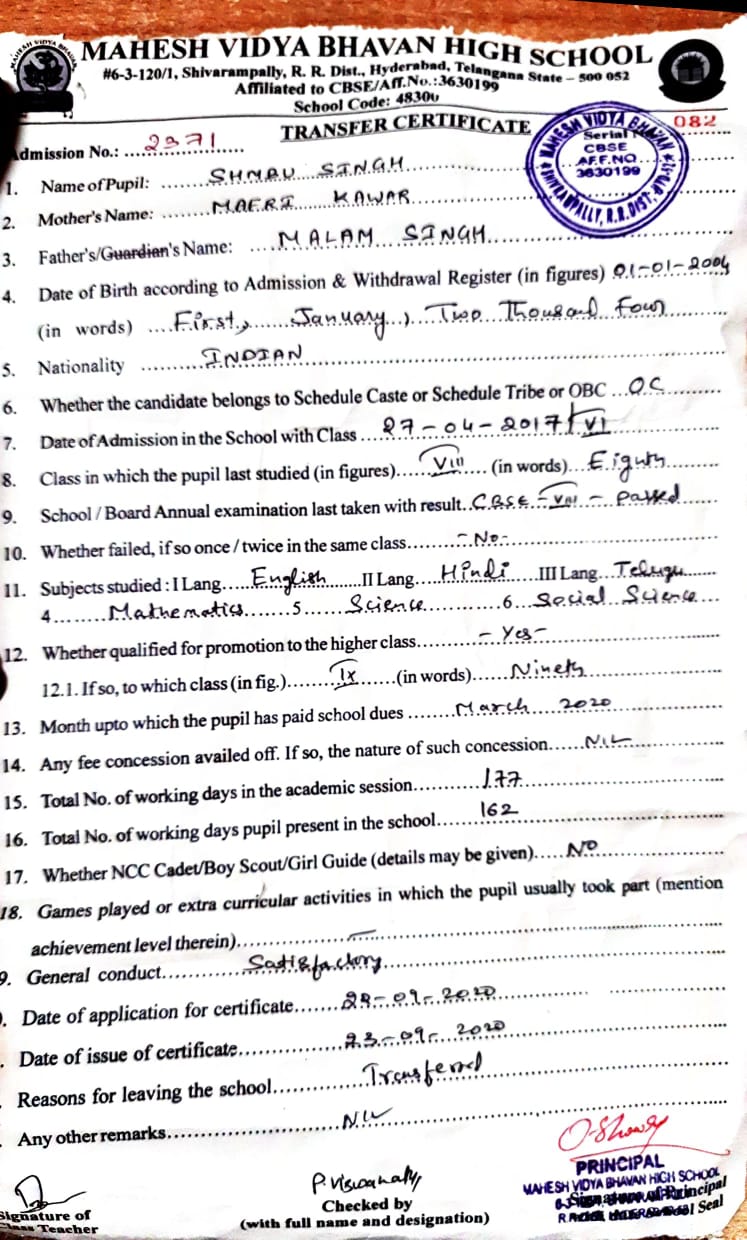 MAHESH VIDYA BHAVAN HIGH SCHOOL
#6-3-120/1, Shivarampally, R. R. Dist., Hyderabad, Telangana State – 500 052
Affiliated to CBSE/Aff.No.:3630199
School Code: 48300
TRANSFER CERTIFICATE
MAHESH VIDYA BHAVAN
Serial
CBSE
AFF.NO.
3630199
082
Admission No.: 2371
1. Name of Pupil: SHMBU SINGH
2. Mother's Name: MAFRI KAWAR
3. Father's/Guardian's Name: MALAM SINGH
4. Date of Birth according to Admission & Withdrawal Register (in figures) 01-01-2004
(in words) First, January, Two Thousand Four
5. Nationality INDIAN
6. Whether the candidate belongs to Schedule Caste or Schedule Tribe or OBC OC
7. Date of Admission in the School with Class 27-04-2017/VI
8. Class in which the pupil last studied (in figures) VIII (in words) Eighth
9. School / Board Annual examination last taken with result CBSE - VIII - passed
10. Whether failed, if so once / twice in the same class -No-
11. Subjects studied : I Lang. English II Lang. Hindi III Lang. Telugu
4 Mathematics 5 Science 6 Social Science
12. Whether qualified for promotion to the higher class - Yes -
12.1. If so, to which class (in fig.) IX (in words) Nineth
13. Month upto which the pupil has paid school dues March 2020
14. Any fee concession availed off. If so, the nature of such concession NIL
15. Total No. of working days in the academic session 177
16. Total No. of working days pupil present in the school 162
17. Whether NCC Cadet/Boy Scout/Girl Guide (details may be given) NO
18. Games played or extra curricular activities in which the pupil usually took part (mention
achievement level therein) —
9. General conduct Satisfactory
Date of application for certificate -09-2020
Date of issue of certificate 23-09-2020
Reasons for leaving the school Transferred
Any other remarks NIL
Signature of
Class Teacher
Checked by
(with full name and designation)
PRINCIPAL
MAHESH VIDYA BHAVAN HIGH SCHOOL
Signature of Principal
Seal